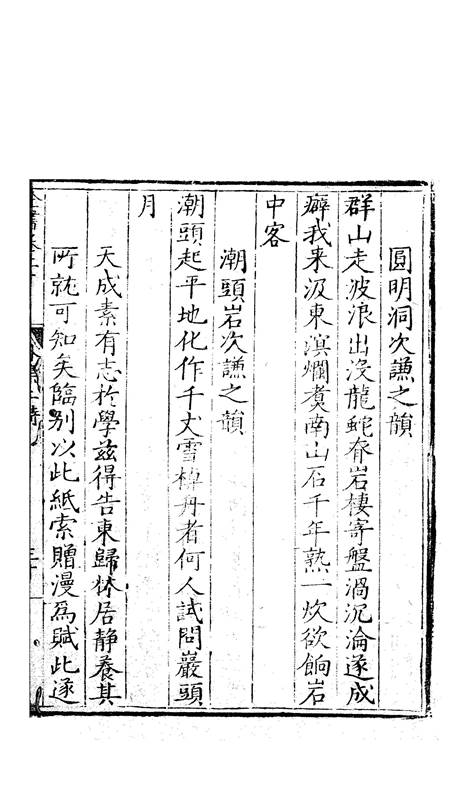 圓明洞次謙之韻
群山走波浪出没龍蛇脊岩棲寄盤渦沉淪遂成
癖我来汲東溟爛煑南山石千年熟一炊欲餉岩
中客
潮頭岩次謙之韻
潮頭起平地化作千丈雪棹舟者何人試問巖頭
月
天成素有志於學兹得告東歸林居静養其
所就可知矣臨别以此紙索贈漫爲賦此遂